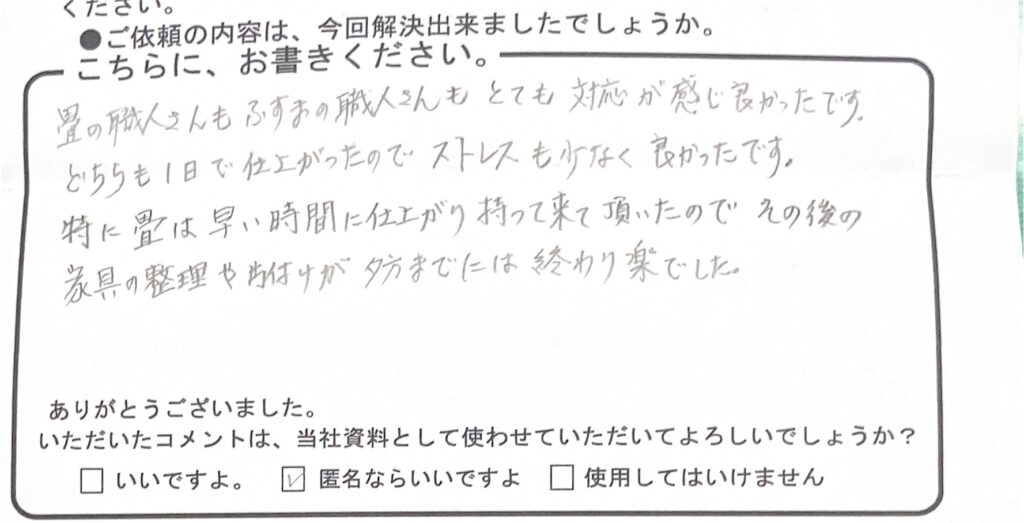 ください。
●ご依頼の内容は、今回解決出来ましたでしょうか。
こちらに、お書きください。
畳の職人さんもふすまの職人さんも とても 対応が 感じ良かったです。
どちらも1日で仕上がったので ストレスも少なく 良かったです。
特に畳は早い時間に仕上がり持って来て頂いたので その後の
家具の整理や片付けが 夕方までには 終わり楽でした。
ありがとうございました。
いただいたコメントは、当社資料として使わせていただいてよろしいでしょうか？
□ いいですよ。 ☑ 匿名ならいいですよ □ 使用してはいけません